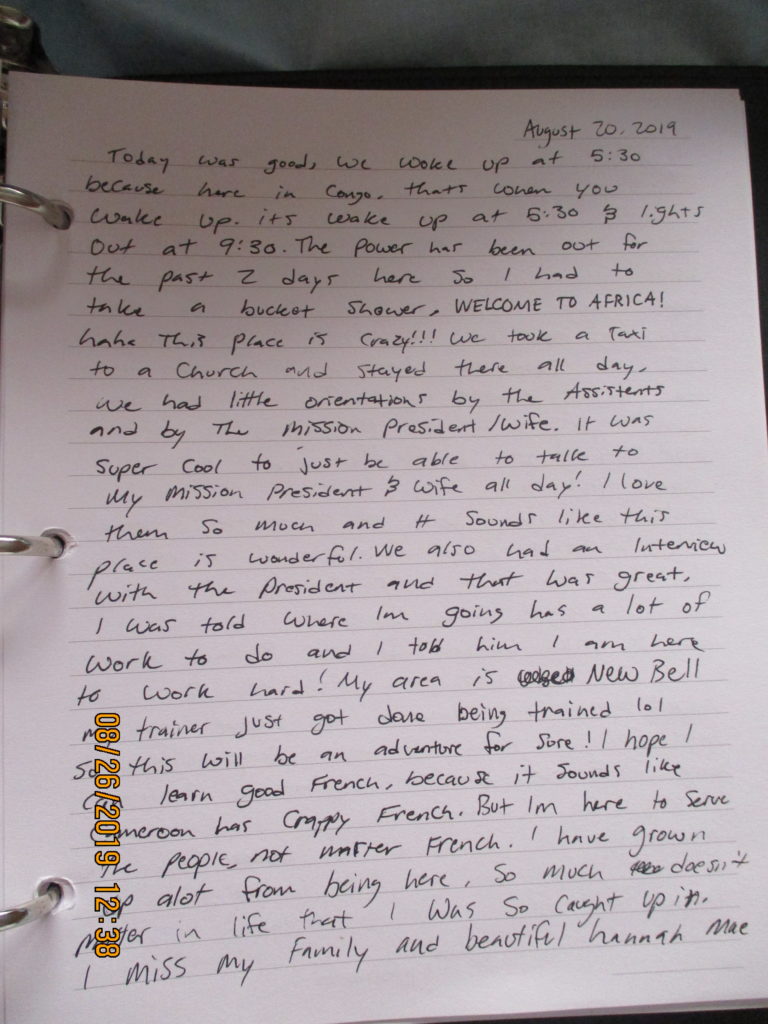 August 20, 2019
Today was good, we woke up at 5:30
because here in Congo. thats when you
wake up. its wake up at 5:30 & lights
out at 9:30. The Power has been out for
the past 2 days here so I had to
take a bucket shower, WELCOME TO AFRICA!
haha This place is crazy!!! we took a Taxi
to a Church and stayed there all day,
we had little orientations by the Assistents
and by The Mission President/wife. It was
super cool to just be able to talk to
My mission President & wife all day! I love
them so much and it sounds like this
place is wonderful. We also had an Interview
with the President and that was great,
I was told where Im going has a lot of
work to do and I told him I am here
to work hard! My area is New Bell
my trainer just got done being trained lol
so this will be an adventure for sure! I hope I
can learn good French, because it sounds like
Cameroon has Crappy French. But Im here to serve
the people, not matter French. I have grown
up alot from being here, so much doesn't
matter in life that I was so caught up in.
I miss my Family and beautiful hannah mae
08/26/2019 12:38